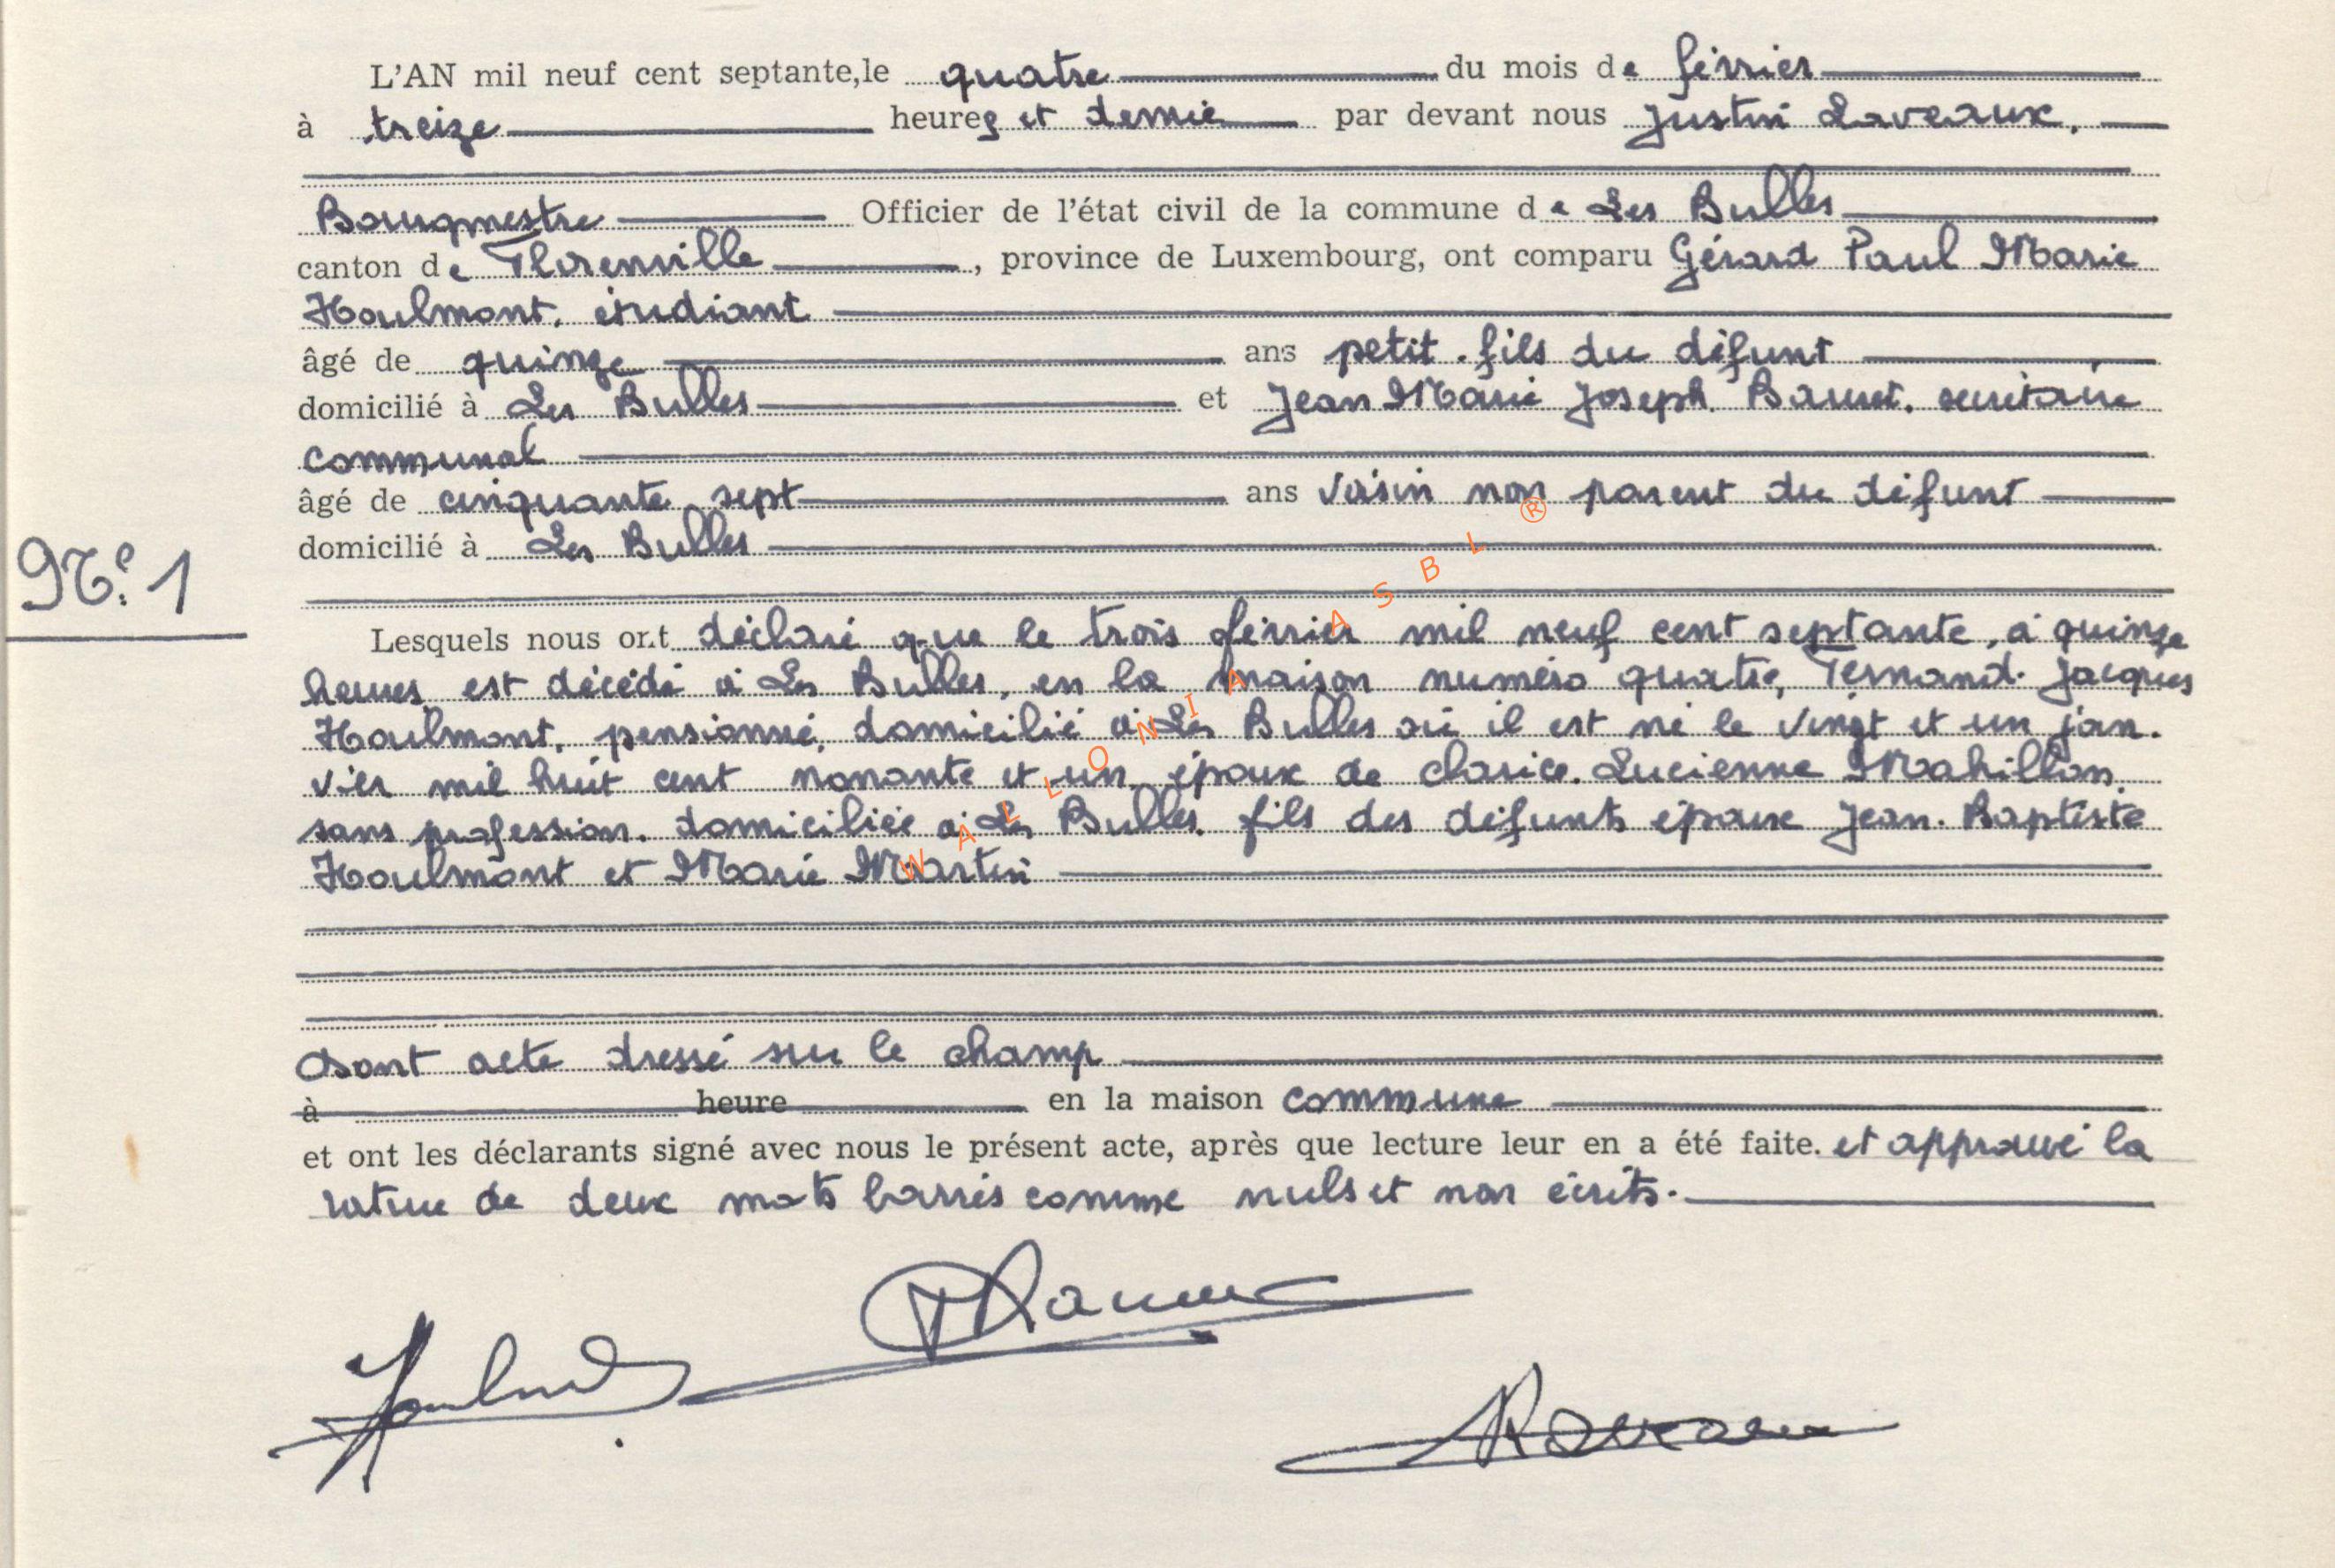 L'AN mil neuf cent septante, le quatre du mois de février
à treize heures et demie par devant nous Justin Laveaux,
Bourgmestre Officier de l'état civil de la commune de Les Bulles
canton de Florenville, province de Luxembourg, ont comparu Gérard Paul Marie
Houlmont, étudiant
âgé de quinze ans petit-fils du défunt
domicilié à Les Bulles et Jean Marie Joseph secrétaire
communal
âgé de cinquante sept ans voisin non parent du défunt
domicilié à Les Bulles
N° 1
Lesquels nous ont déclaré que le trois février mil neuf cent septante, à quinze
heures est décédé à Les Bulles, en la maison numéro quatre, Fernand-Jacques
Houlmont, pensionné, domicilié à Les Bulles où il est né le vingt et un jan-
vier mil huit cent nonante et un, époux de Clarice-Lucienne Mahillon,
sans profession, domiciliée à Les Bulles, fils des défunts époux Jean-Baptiste
Houlmont et Marie Martin
Dont acte dressé sur le champ
à heure en la maison commune
et ont les déclarants signé avec nous le présent acte, après que lecture leur en a été faite. et approuvé la
rature de deux mots barrés comme nuls et non écrits.
WALLONIA ASBL ®